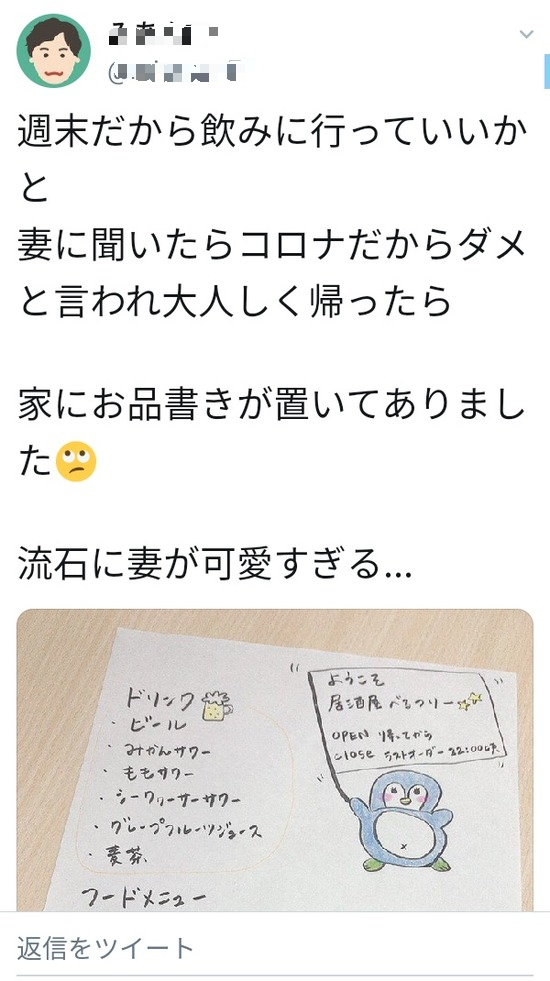 週末だから飲みに行っていいか
と
妻に聞いたらコロナだからダメ
と言われ大人しく帰ったら
家にお品書きが置いてありまし
た🙄
流石に妻が可愛すぎる...
ようこそ
居酒屋
OPEN 帰ってから
close ラストオーダー 22:00
ドリンク
・ビール
・みかんサワー
・ももサワー
・シークヮーサーサワー
・グレープフルーツジュース
・麦茶
フードメニュー
返信をツイート